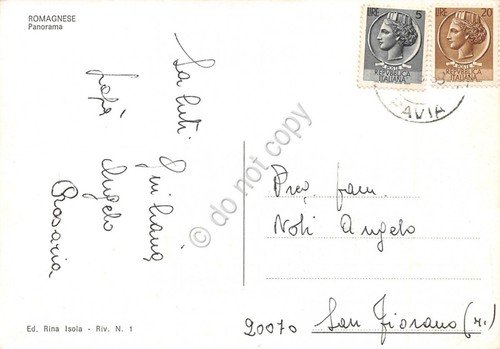 ROMAGNESE
Panorama
LIRE 5
POSTE
REPUBBLICA
ITALIANA
LIRE 20
POSTE
REPUBBLICA
ITALIANA
PAVIA
Saluti Giuliana
Angelo
Rosaria
© do not copy
Preg. fam.
Noli Angelo
20070 San Fiorano (
Ed. Rina Isola - Riv. N. 1